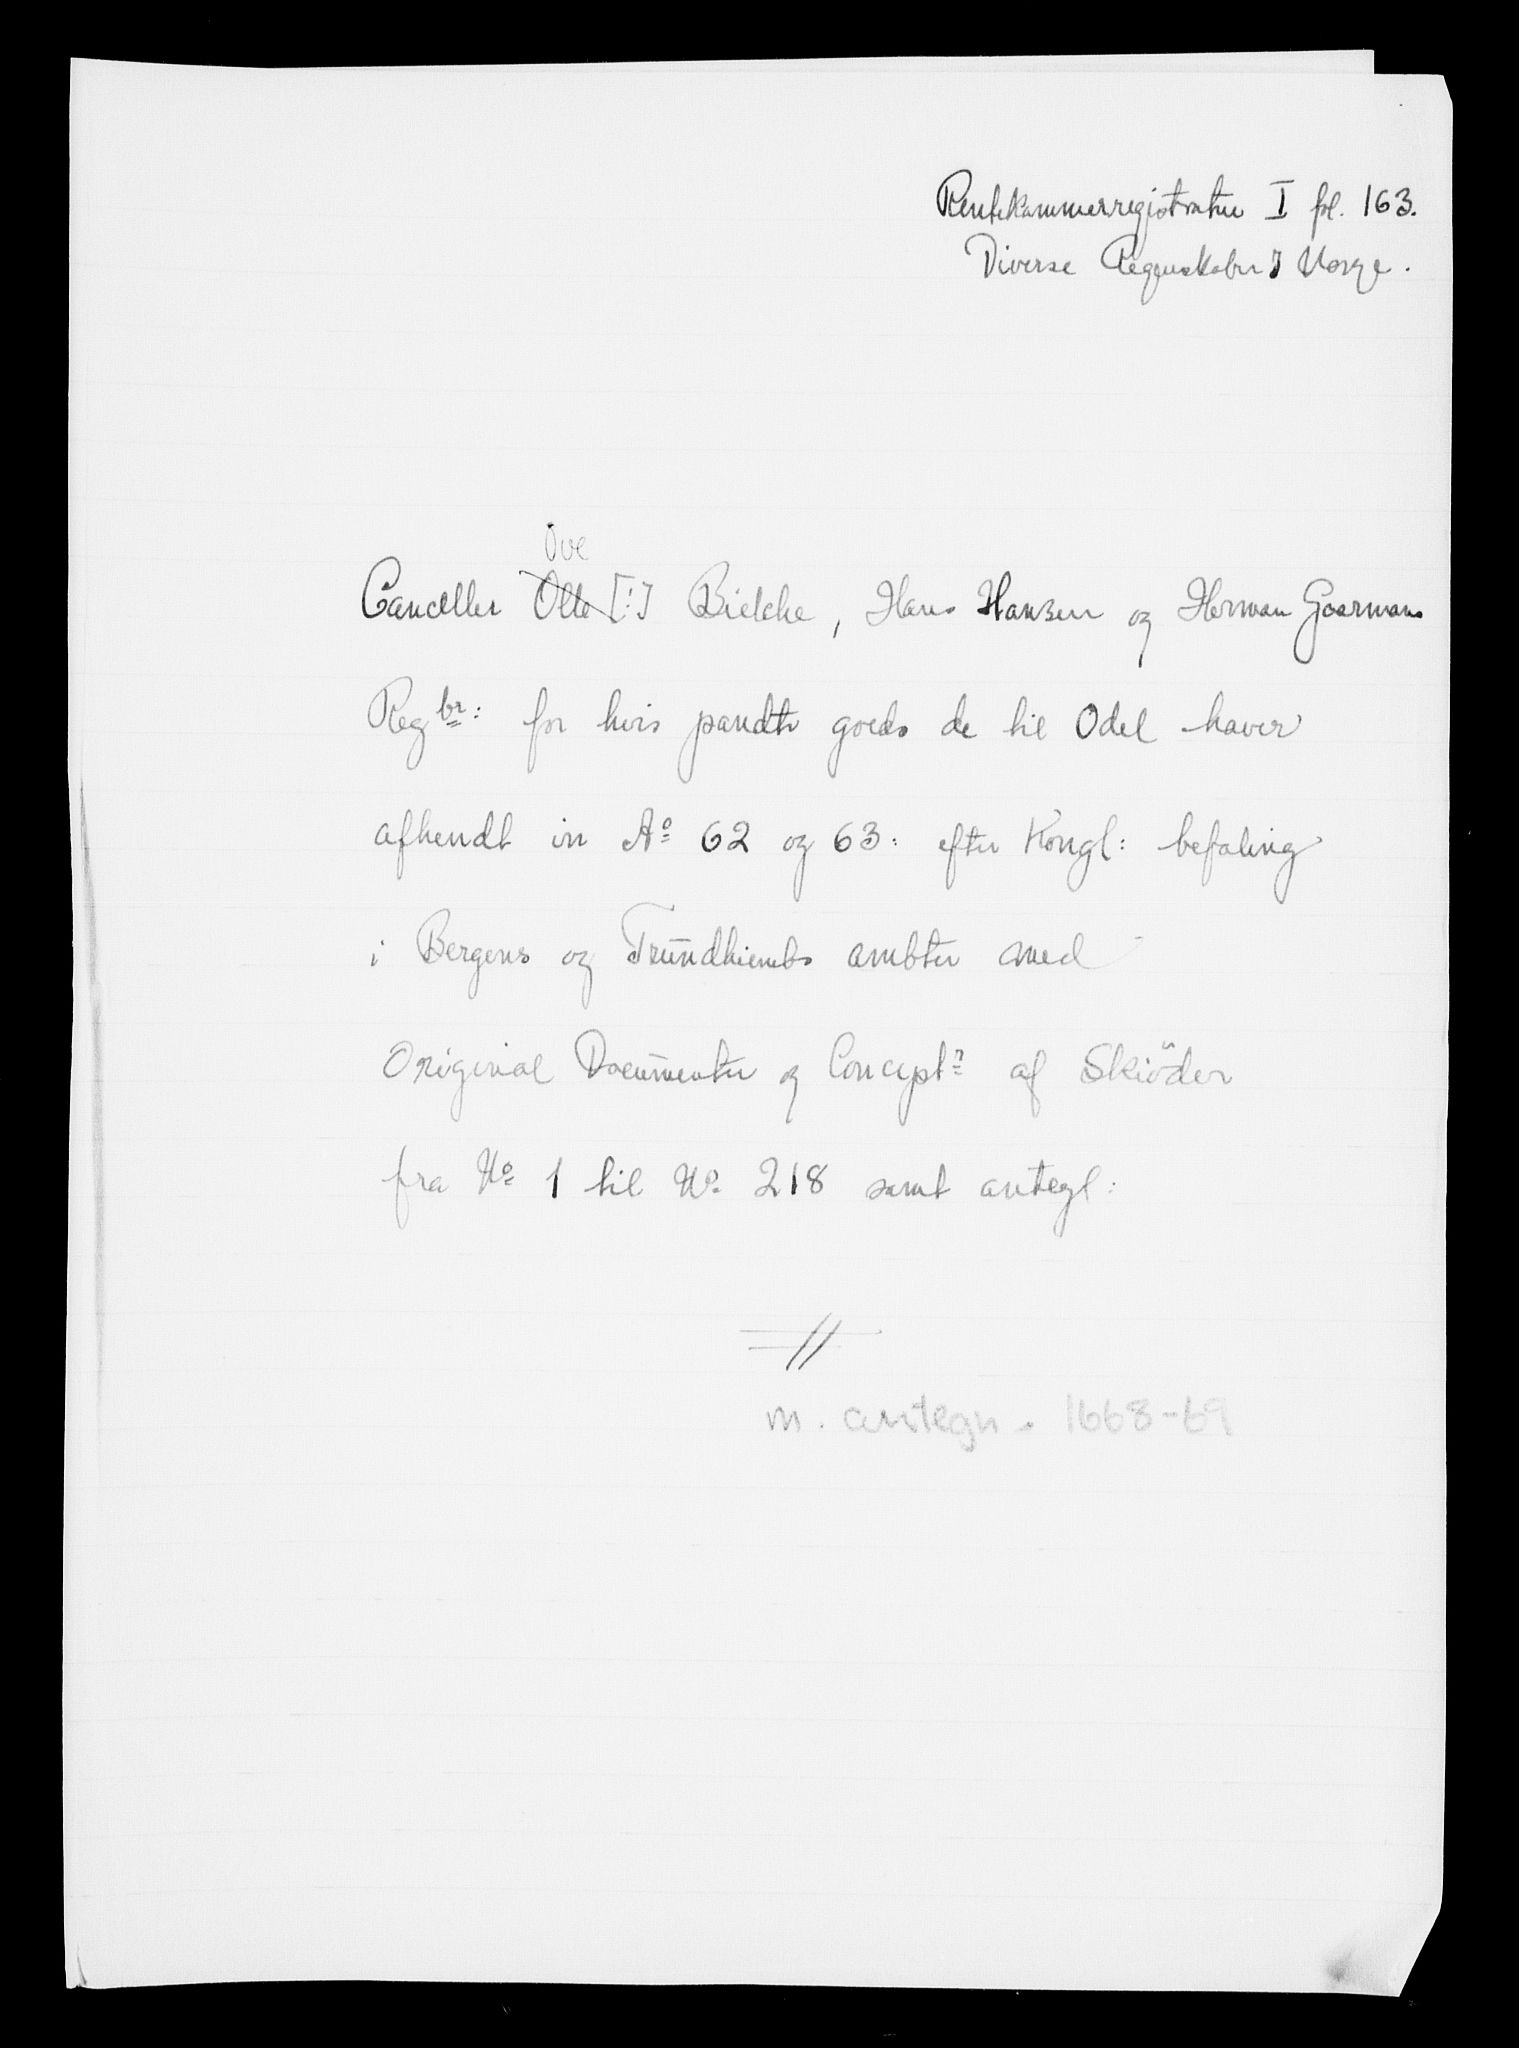 Rentekammerregistratur I fol. 163.
Diverse Regenskaber i Norge.
Ove
Canceller Olle [!] Bielche, Hans Hansen og Herman Gaarmans
Reg br: for hvis pandte goeds de til Odel haver
afhendt in Aº 62 og 63: efter Kongl: befaling
i Bergens og Trundhiembs ambter med
Original Documenter og Concept r af Skiöder
fra Nº 1 til Nº 218 samt antegl:
m. antegn. 1668-69